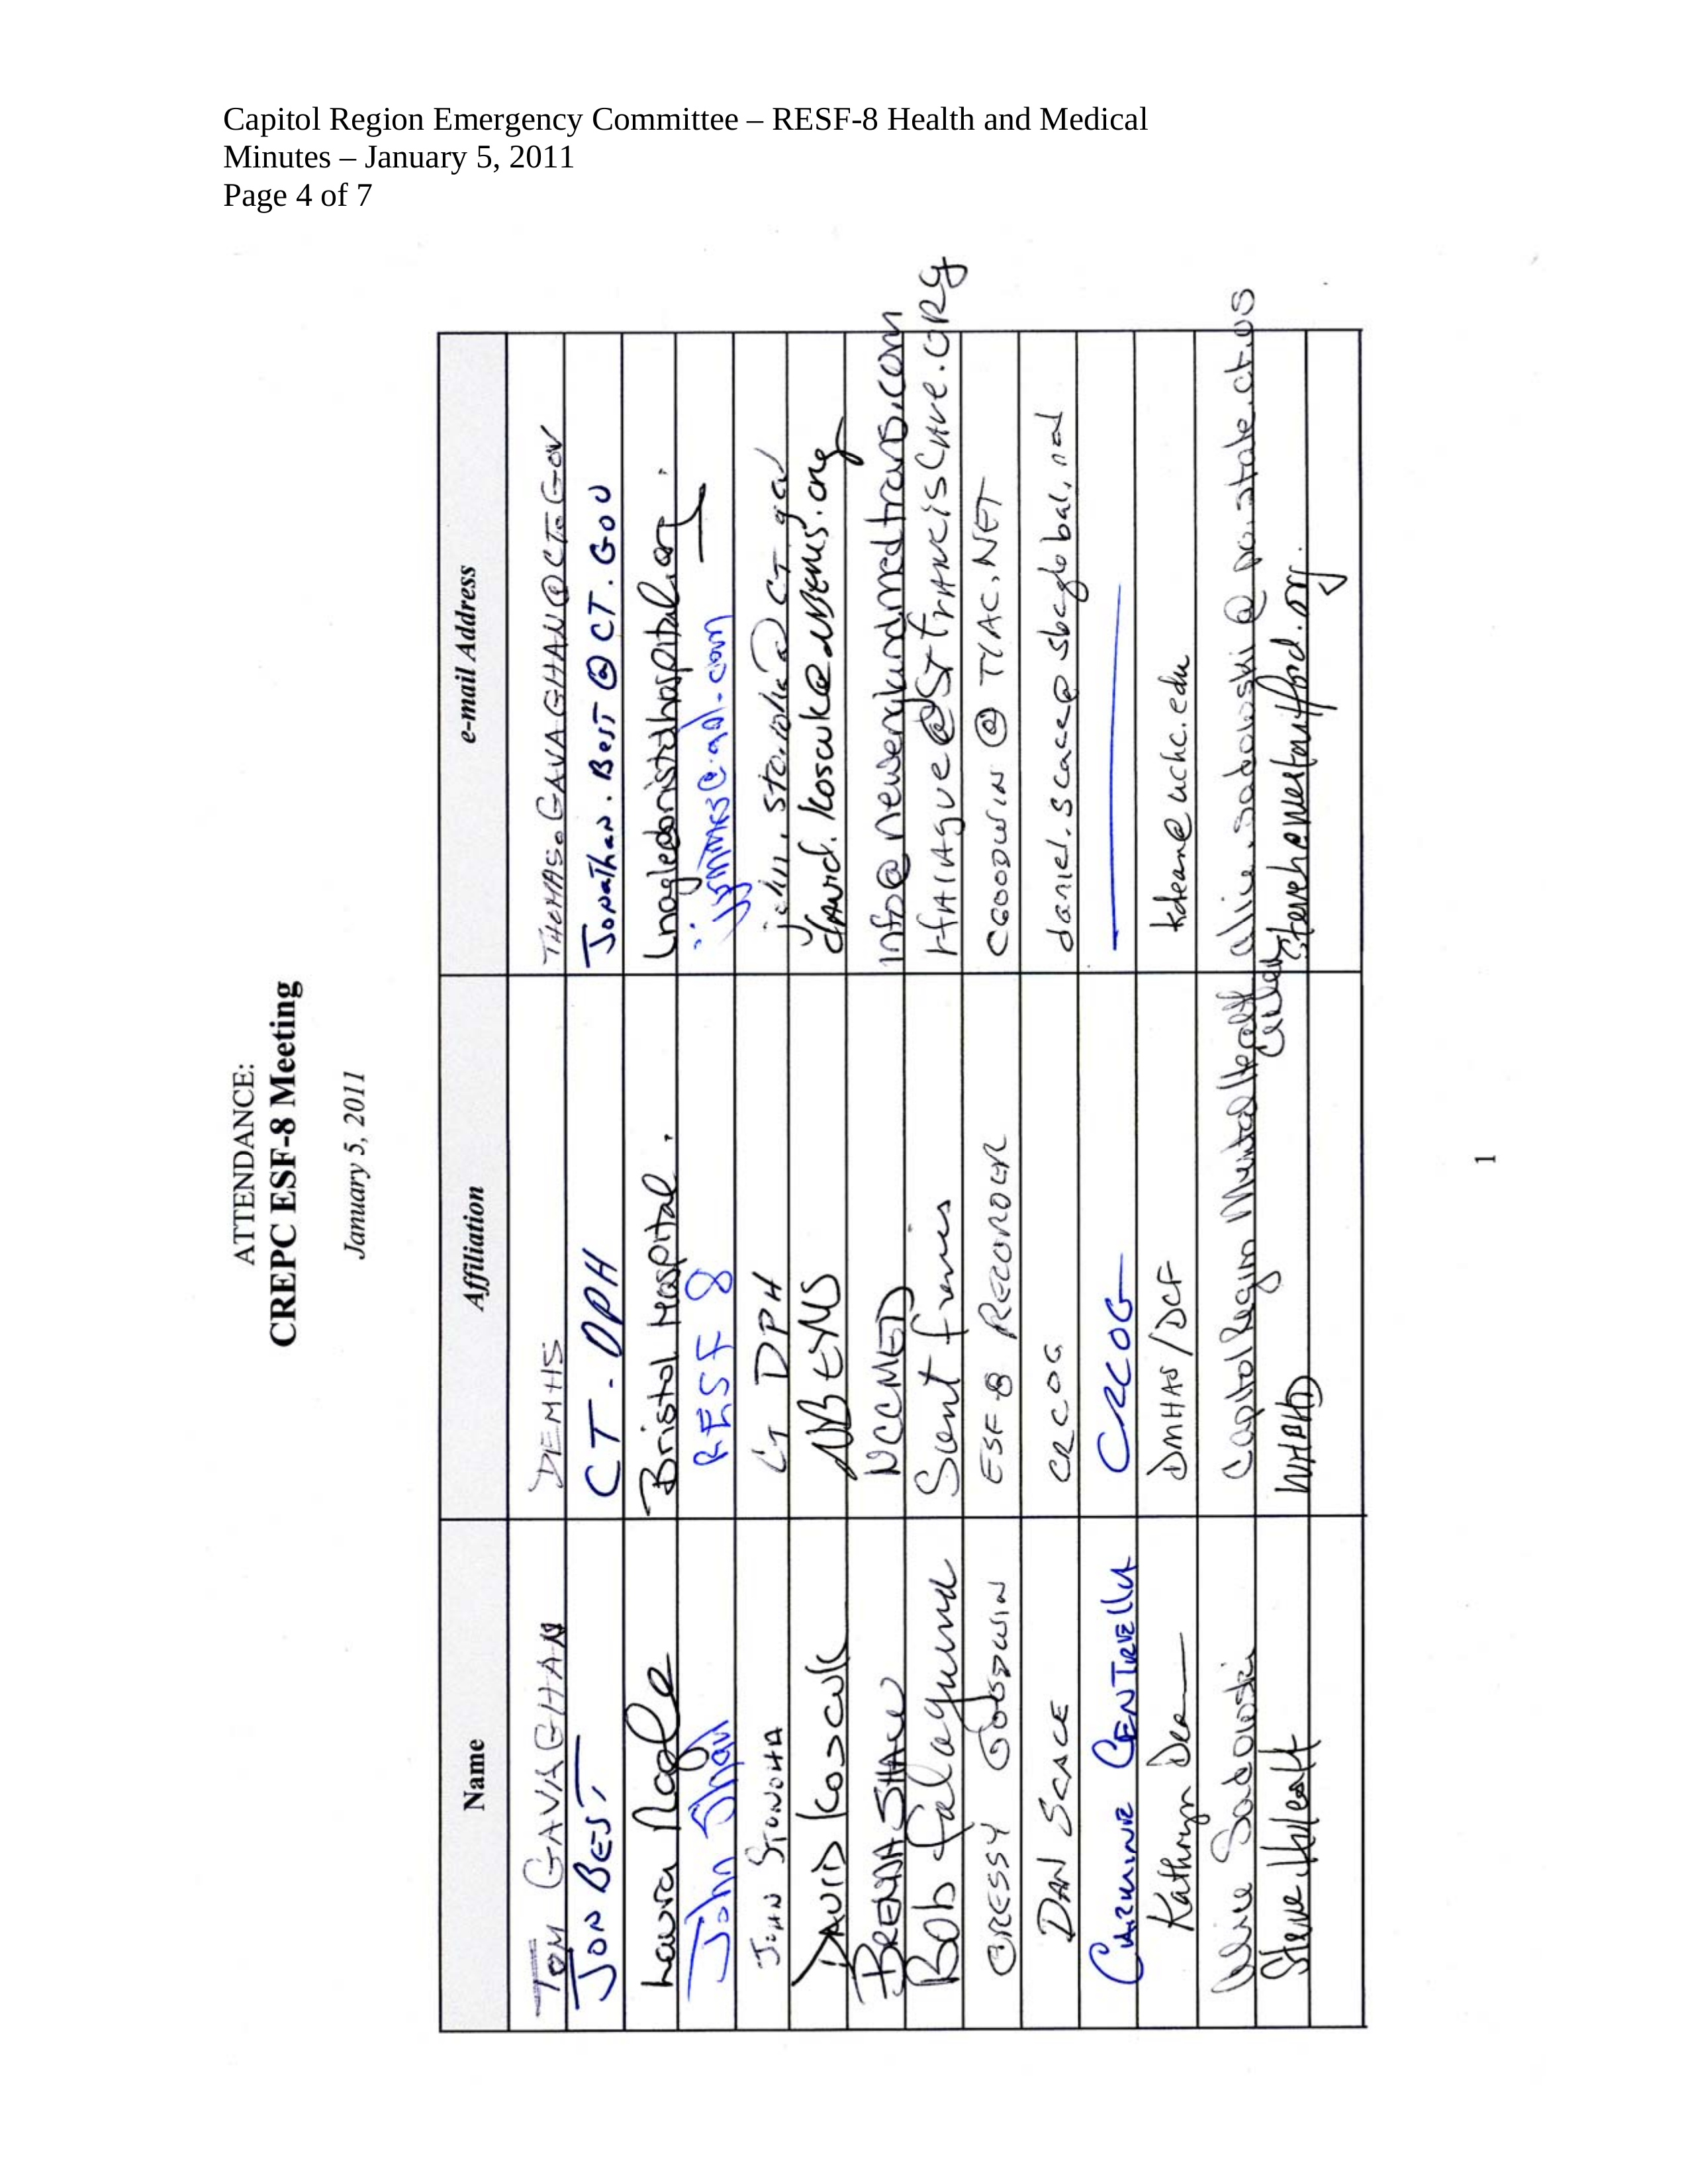 Capitol Region Emergency Committee – RESF-8 Health and Medical
Minutes – January 5, 2011
Page 4 of 7
ATTENDANCE:
CREPC ESF-8 Meeting
January 5, 2011
Name Affiliation e-mail Address
TOM GAVAGHAN DEMHS THOMAS.GAVAGHAN@CT.GOV
JON BEST CT. DPH JONATHAN.BEST@CT.GOV
Laura Nagle Bristol Hospital lnagle@bristolhospital.org
John Shaw RESF 8
JOHN STONOHA CT DPH
DAVID KOSCUK NBEMS david.koscuk@NBEMS.org
BRENDA SHAW NCCMED info@newenglandmedtrans.com
Bob Falaguerra Saint Francis rfalague@stfrancisCare.org
CRESSY GOODWIN ESF-8 RECORDER CGOODWIN@TIAC.NET
DAN SCACE CRCOG daniel.scace@sbcglobal.net
CARMINE CENTRELLA CRCOG
Kathryn Dean DMHAS/DCF kdean@uchc.edu
Alice Sadowski Capitol Region Mental Health Center alice.sadowski@po.state.ct.us
Steve Huleatt WHAHD steveh@westhartford.org
1